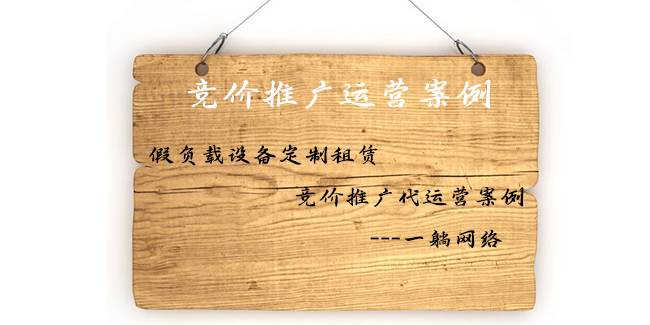 竞价推广运营案例
假负载设备定制租赁
竞价推广代运营案例
---一躺网络